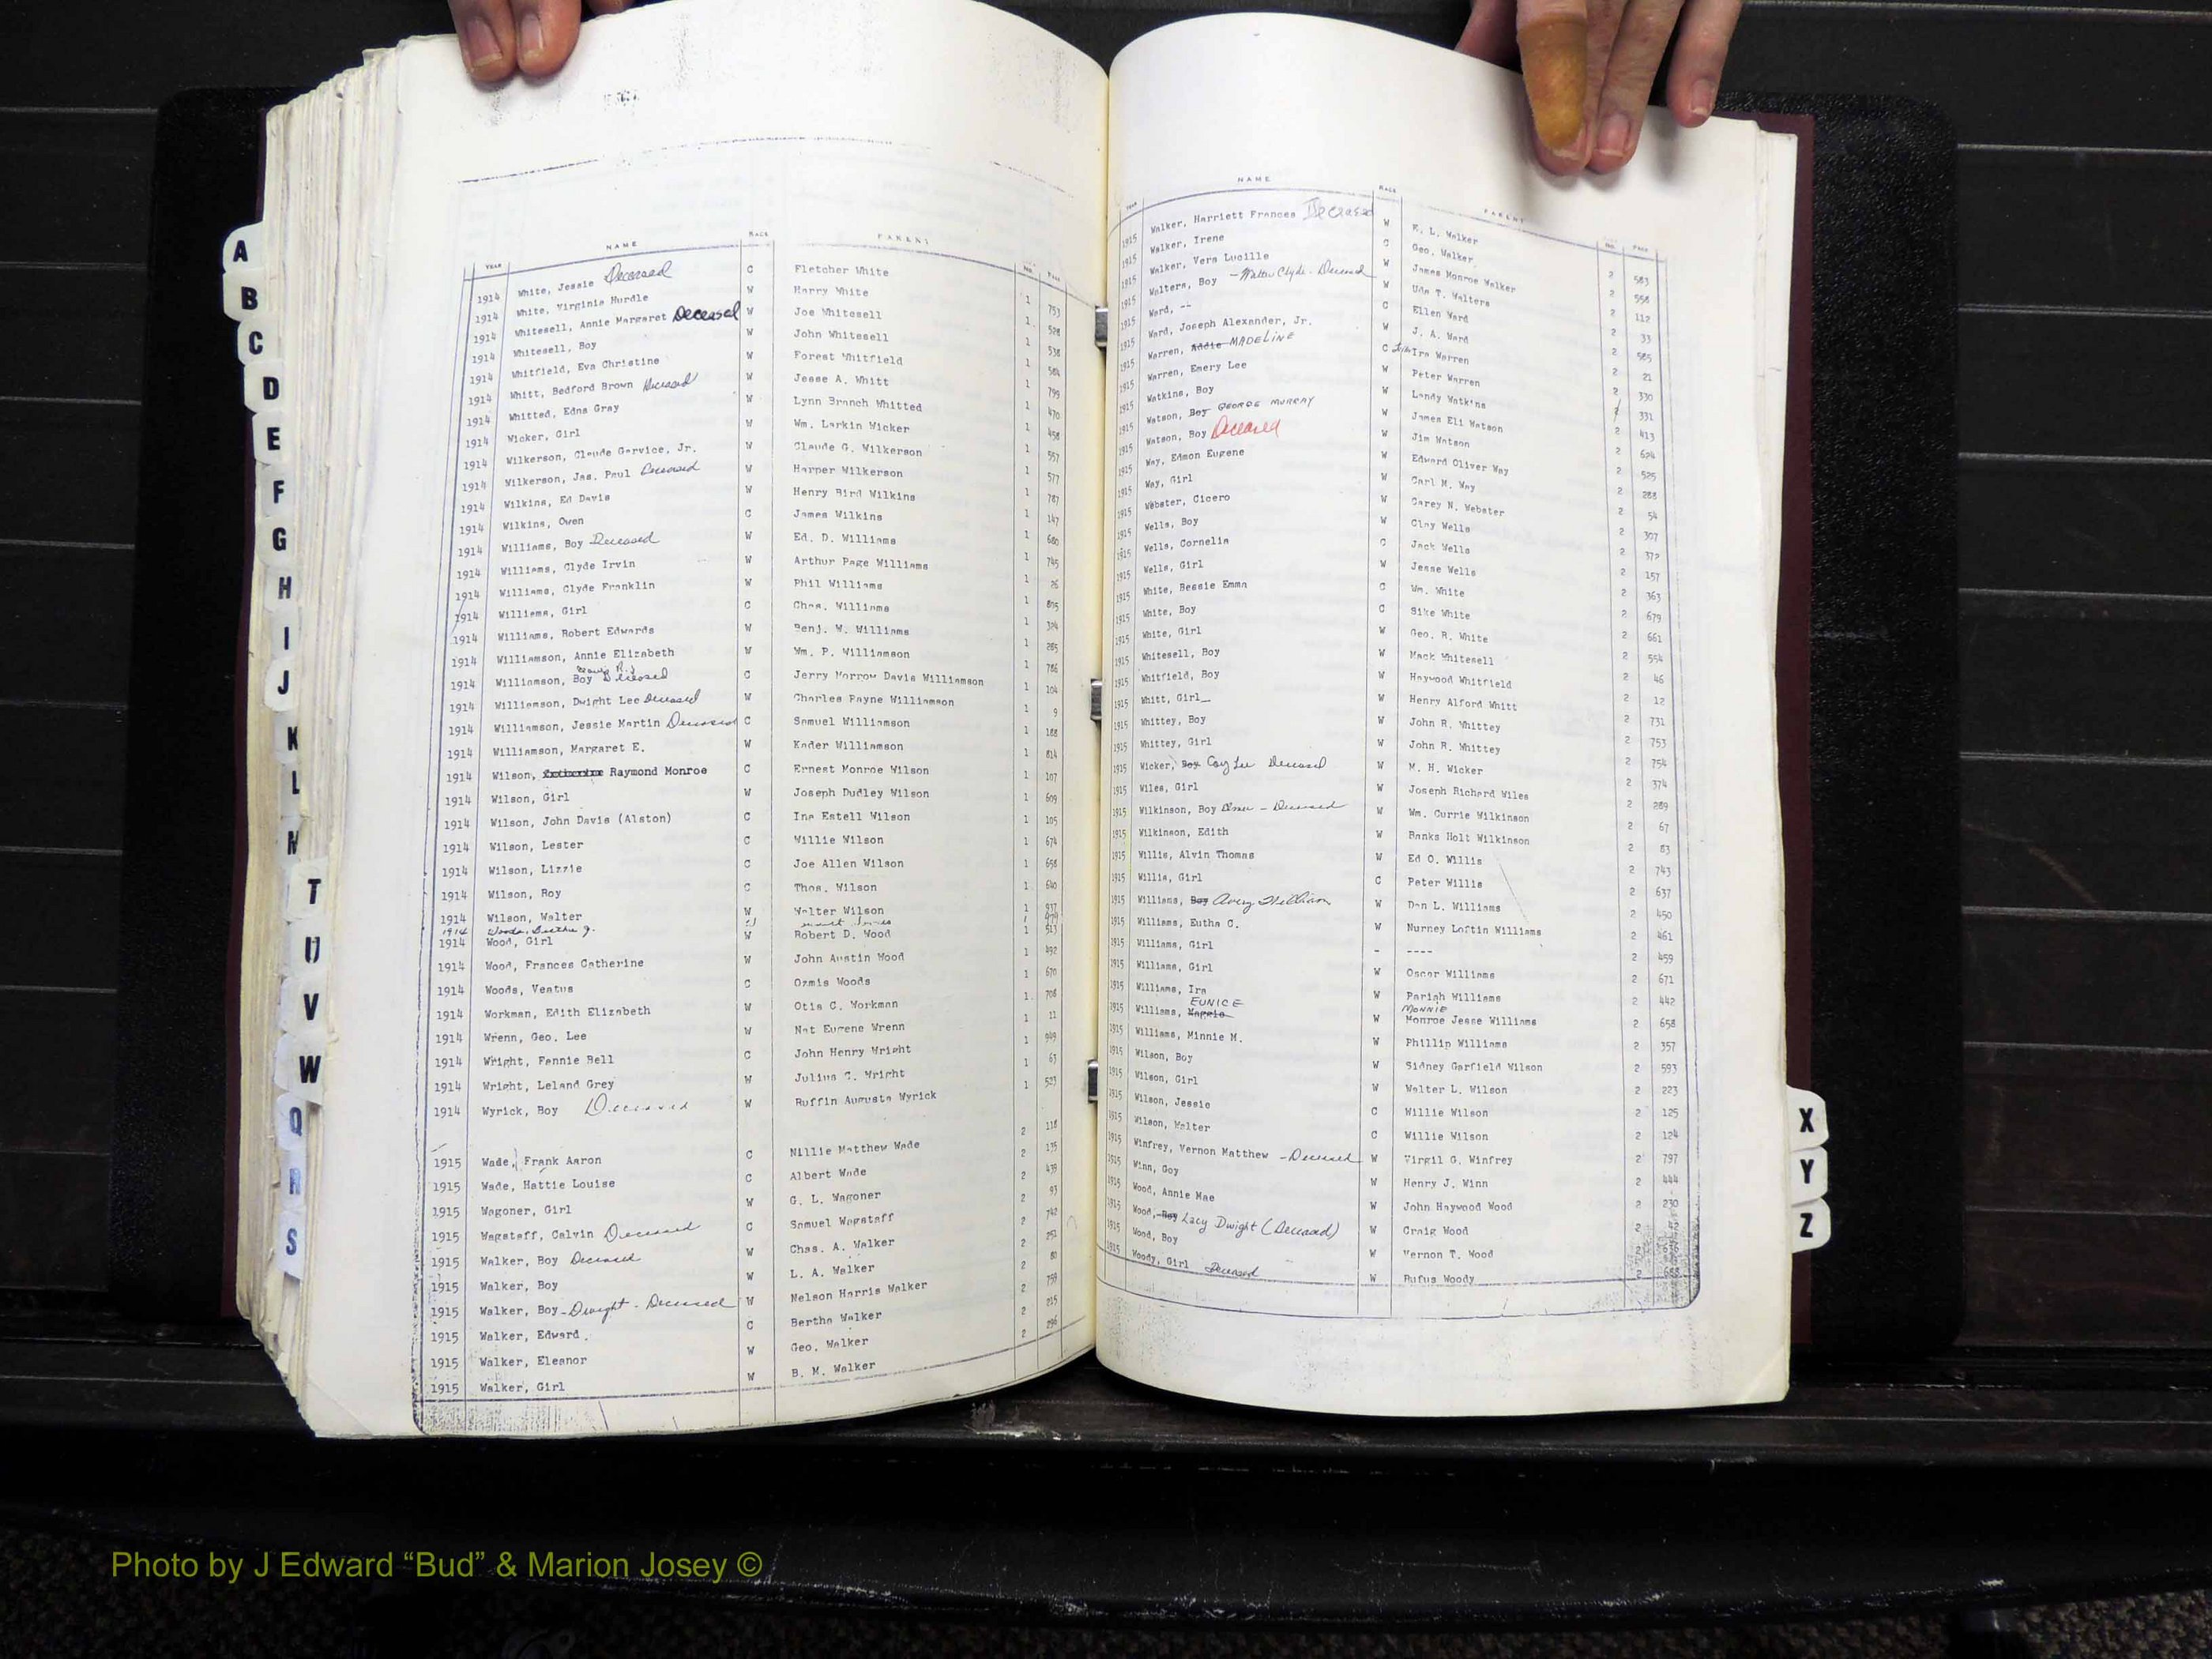 A
B
C
D
E
F
G
H
I
J
K
L
M
T
U
V
W
Q
R
S
YEAR NAME RACE PARENT NO. PAGE
1914 White, Jessie Deceased C Fletcher White 1 753
1914 White, Virginia Hurdle W Harry White 1 528
1914 Whitesell, Annie Margaret Deceased W Joe Whitesell 1 538
1914 Whitesell, Boy W John Whitesell 1 584
1914 Whitfield, Eva Christine W Forest Whitfield 1 799
1914 Whitt, Bedford Brown Deceased W Jesse A. Whitt 1 470
1914 Whitted, Edna Gray W Lynn Branch Whitted 1 458
1914 Wicker, Girl W Wm. Larkin Wicker 1 557
1914 Wilkerson, Claude Garvice, Jr. W Claude G. Wilkerson 1 577
1914 Wilkerson, Jas. Paul Deceased W Harper Wilkerson 1 787
1914 Wilkins, Ed Davis W Henry Bird Wilkins 1 147
1914 Wilkins, Owen C James Wilkins 1 680
1914 Williams, Boy Deceased W Ed. D. Williams 1 745
1914 Williams, Clyde Irvin W Arthur Page Williams 1 26
1914 Williams, Clyde Franklin W Phil Williams 1 805
1914 Williams, Girl C Chas. Williams 1 324
1914 Williams, Robert Edwards W Benj. W. Williams 1 285
1914 Williamson, Annie Elizabeth W Wm. P. Williamson 1 786
1914 Williamson, Boy Deceased C Jerry Morrow Davis Williamson 1 104
1914 Williamson, Dwight Lee Deceased W Charles Payne Williamson 1 9
1914 Williamson, Jessie Martin Deceased C Samuel Williamson 1 188
1914 Williamson, Margaret E. W Kader Williamson 1 814
1914 Wilson, Raymond Monroe C Ernest Monroe Wilson 1 107
1914 Wilson, Girl W Joseph Dudley Wilson 1 609
1914 Wilson, John Davis (Alston) C Ina Estell Wilson 1 105
1914 Wilson, Lester C Willie Wilson 1 674
1914 Wilson, Lizzie C Joe Allen Wilson 1 658
1914 Wilson, Roy C Thos. Wilson 1 640
1914 Wilson, Walter W Walter Wilson 1 937
1914 Woods,
1914 Wood, Girl W Robert D. Wood 1 513
1914 Wood, Frances Catherine W John Austin Wood 1 492
1914 Woods, Ventus C Ozmis Woods 1 670
1914 Workman, Edith Elizabeth W Otis C. Workman 1 708
1914 Wrenn, Geo. Lee W Nat Eugene Wrenn 1 11
1914 Wright, Fannie Bell C John Henry Wright 1 949
1914 Wright, Leland Grey W Julius C. Wright 1 63
1914 Wyrick, Boy Deceased W Ruffin Augusta Wyrick 1 523
1915 Wade, Frank Aaron C Nillie Matthew Wade 2 118
1915 Wade, Hattie Louise C Albert Wade 2 135
1915 Wagoner, Girl W G. L. Wagoner 2 439
1915 Wagstaff, Calvin Deceased C Samuel Wagstaff 2 93
1915 Walker, Boy Deceased W Chas. A. Walker 2 742
1915 Walker, Boy W L. A. Walker 2 251
1915 Walker, Boy - Dwight - Deceased W Nelson Harris Walker 2 80
1915 Walker, Edward C Bertha Walker 2 759
1915 Walker, Eleanor W Geo. Walker 2 215
1915 Walker, Girl W B. M. Walker 2 296
YEAR NAME RACE PARENT NO. PAGE
1915 Walker, Harriett Frances Deceased W E. L. Walker 2 583
1915 Walker, Irene C Geo. Walker 2 558
1915 Walker, Vera Lucille W James Monroe Walker 2 112
1915 Walters, Boy - Walter Clyde - Deceased W Uda T. Walters 2 33
1915 Ward, -- C Ellen Ward 2 585
1915 Ward, Joseph Alexander, Jr. W J. A. Ward 2 21
1915 Warren, Addie MADELINE C Ira Warren 2 330
1915 Warren, Emery Lee W Peter Warren 2 331
1915 Watkins, Boy W Landy Watkins 2 413
1915 Watson, Boy GEORGE MURRAY W James Eli Watson 2 624
1915 Watson, Boy Deceased W Jim Watson 2 525
1915 Way, Edmon Eugene W Edward Oliver Way 2 288
1915 Way, Girl W Carl M. Way 2 54
1915 Webster, Cicero W Carey N. Webster 2 307
1915 Wells, Boy W Clay Wells 2 372
1915 Wells, Cornelia C Jack Wells 2 157
1915 Wells, Girl W Jesse Wells 2 363
1915 White, Bessie Emma C Wm. White 2 679
1915 White, Boy C Sike White 2 661
1915 White, Girl W Geo. R. White 2 554
1915 Whitesell, Boy W Mack Whitesell 2 46
1915 Whitfield, Boy W Haywood Whitfield 2 12
1915 Whitt, Girl W Henry Alford Whitt 2 731
1915 Whittey, Boy W John R. Whittey 2 753
1915 Whittey, Girl W John R. Whittey 2 754
1915 Wicker, Boy Coy Lee Deceased W M. H. Wicker 2 374
1915 Wiles, Girl W Joseph Richard Wiles 2 289
1915 Wilkinson, Boy Elmer - Deceased W Wm. Currie Wilkinson 2 67
1915 Wilkinson, Edith W Banks Holt Wilkinson 2 83
1915 Willis, Alvin Thomas W Ed O. Willis 2 743
1915 Willis, Girl C Peter Willis 2 637
1915 Williams, Boy Avery William W Dan L. Williams 2 450
1915 Williams, Eutha C. W Nurney Loftin Williams 2 461
1915 Williams, Girl - ---- 2 459
1915 Williams, Girl W Oscar Williams 2 671
1915 Williams, Ira W Parish Williams 2 442
1915 Williams, Maggie EUNICE W Monroe MONNIE Jesse Williams 2 658
1915 Williams, Minnie M. W Phillip Williams 2 357
1915 Wilson, Boy W Sidney Garfield Wilson 2 593
1915 Wilson, Girl W Walter L. Wilson 2 223
1915 Wilson, Jessie C Willie Wilson 2 125
1915 Wilson, Walter C Willie Wilson 2 124
1915 Winfrey, Vernon Matthew - Deceased W Virgil G. Winfrey 2 797
1915 Winn, Goy W Henry J. Winn 2 444
1915 Wood, Annie Mae W John Haywood Wood 2 230
1915 Wood, Boy Lacy Dwight (Deceased) W Craig Wood 2
1915 Wood, Boy W Vernon T. Wood 2
1915 Woody, Girl Deceased W Rufus Woody 2
X
Y
Z
Photo by J Edward “Bud” & Marion Josey ©